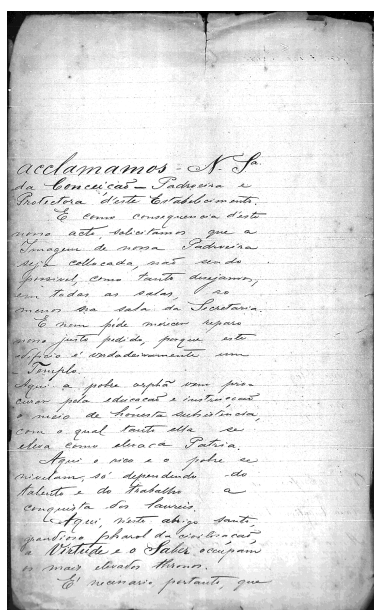 acclamamos - N. Sa.
da Conceição - Padroeira e
Protectora d'este Estabelecimento.
E como consequencia d'este
nosso acto, solicitamos que a
Imagem de nossa Padroeira
seja collocada, não sendo
possivel, como tanto desejamos,
em todas as salas, ao
menos na sala da Secretaria.
E nem póde merecer reparo
nosso justo pedido, porque este
edificio é verdadeiramente um
Templo.
Aqui a pobre orphã vem pro-
curar pela educação e instrucção
o meio de honesta subsistencia,
com o qual tanto ella se
eleva como eleva a Patria.
Aqui o rico e o pobre se
nivelam, só dependendo do
talento e do trabalho a
conquista dos laureis.
Aqui, neste abrigo santo,
grandioso pharol da civilisação,
a Virtude e o Saber occupam
os mais elevados thronos.
E' necessario portanto, que